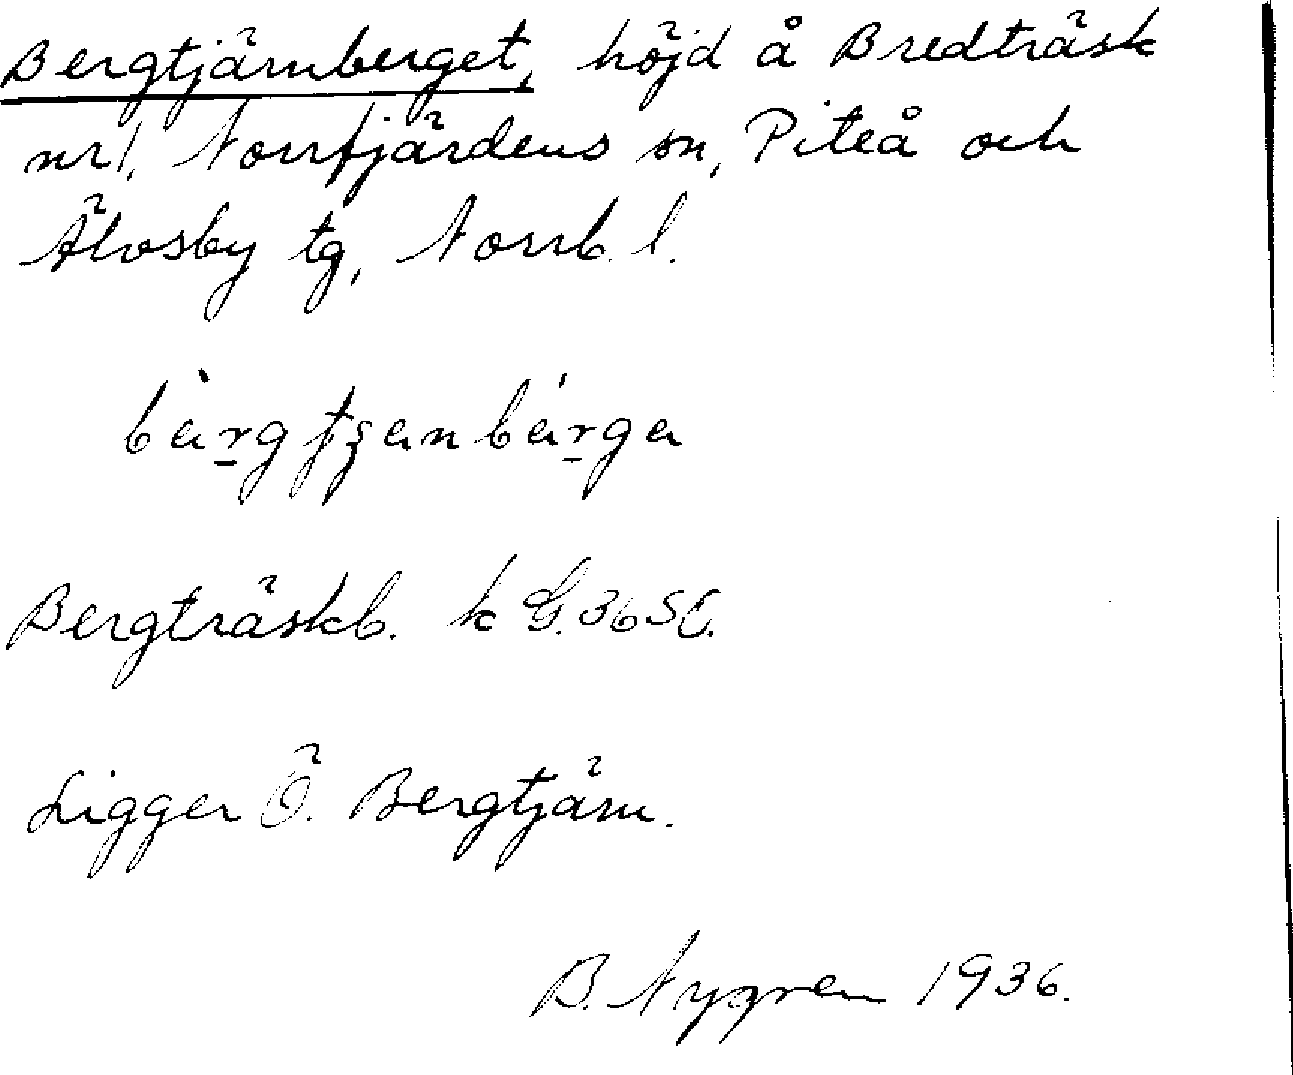 Bergtjärnberget, höjd å Bredträsk
nr 1, Norrfjärdens sn, Piteå och
Älvsby tg, Norrb. l.
Bergträskb. k G. 36 SO.
Ligger Ö. Bergtjärn.
B. Nygren 1936.